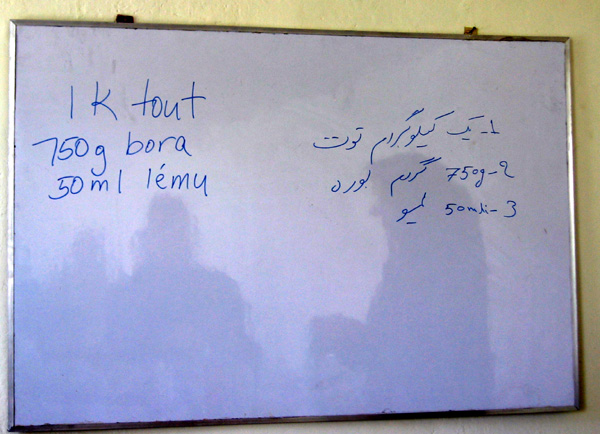 1 K tout
750g bora
50ml lému
1- یک کیلوگرام توت
2- 750g گرم بوره
3- 50mli لیمو